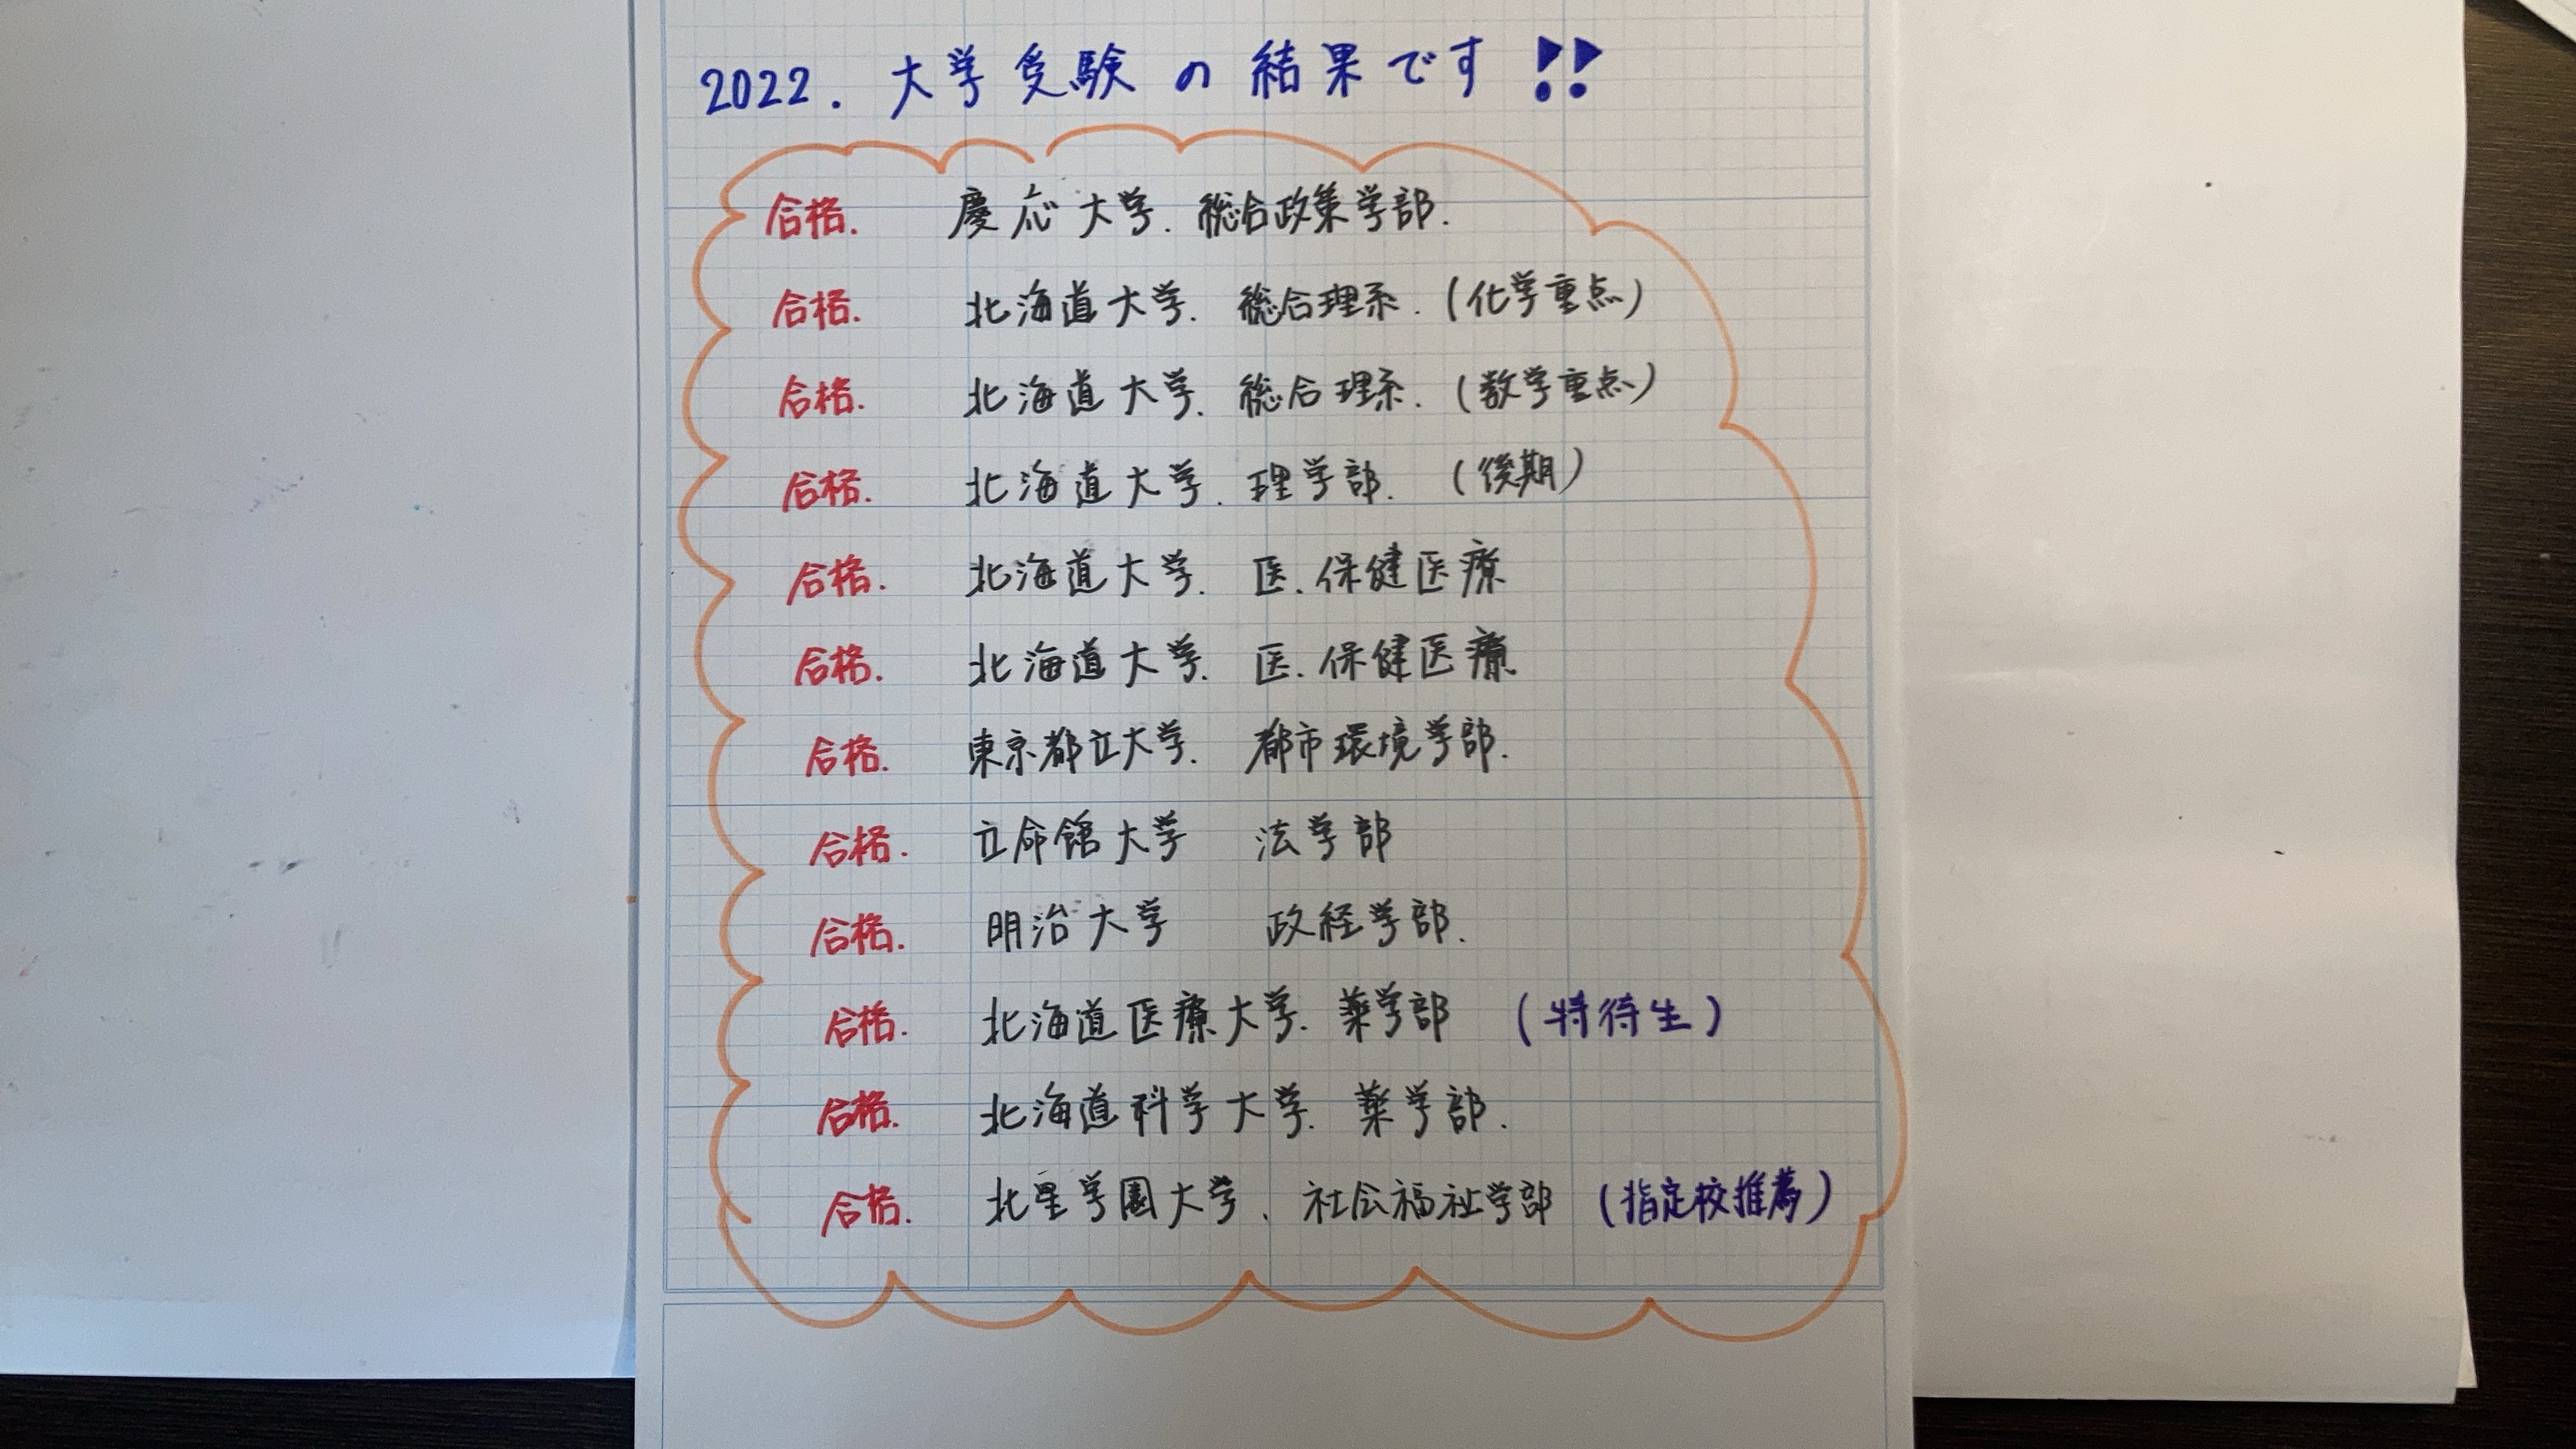 2022. 大学受験の結果です!!
合格. 慶応大学. 総合政策学部.
合格. 北海道大学. 総合理系. (化学重点)
合格. 北海道大学. 総合理系. (数学重点)
合格. 北海道大学. 理学部. (後期)
合格. 北海道大学. 医. 保健医療
合格. 北海道大学. 医. 保健医療
合格. 東京都立大学. 都市環境学部.
合格. 立命館大学 法学部
合格. 明治大学 政経学部.
合格. 北海道医療大学. 薬学部 (特待生)
合格. 北海道科学大学. 薬学部.
合格. 北星学園大学. 社会福祉学部 (指定校推薦)